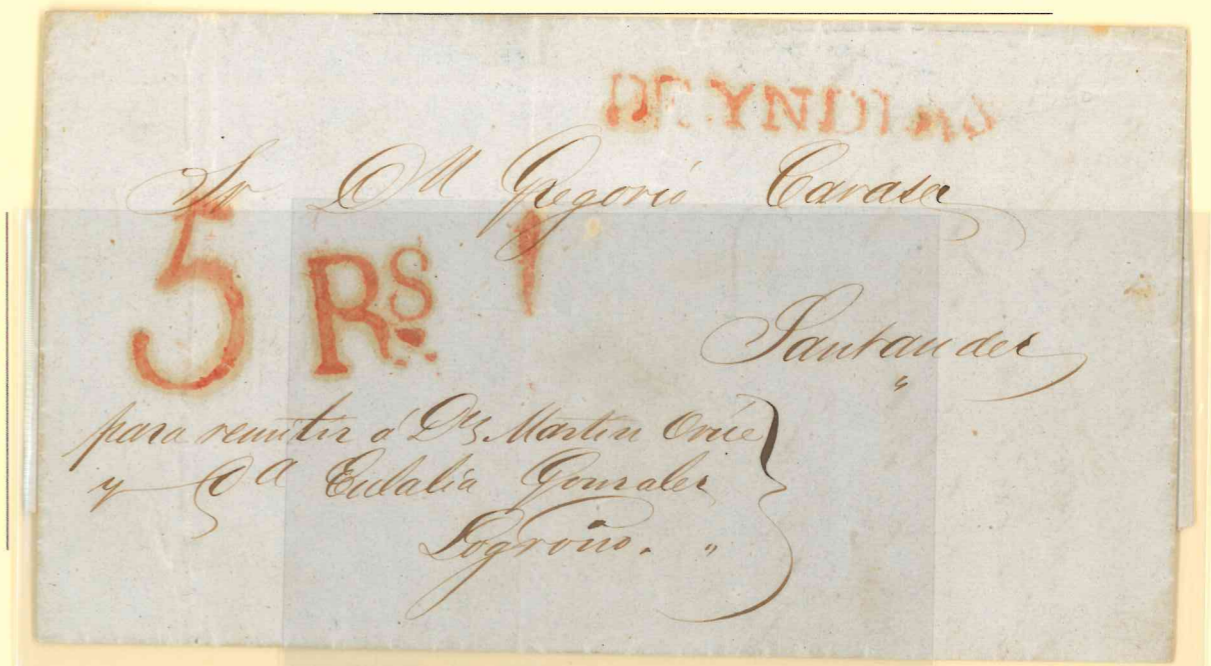 DE YNDIAS
Sr Dn Gregorio Carasa
5 Rs.
Santander
para remitir á Ds Martin Orúe
y Da Eulalia Gonzales
Logroño.